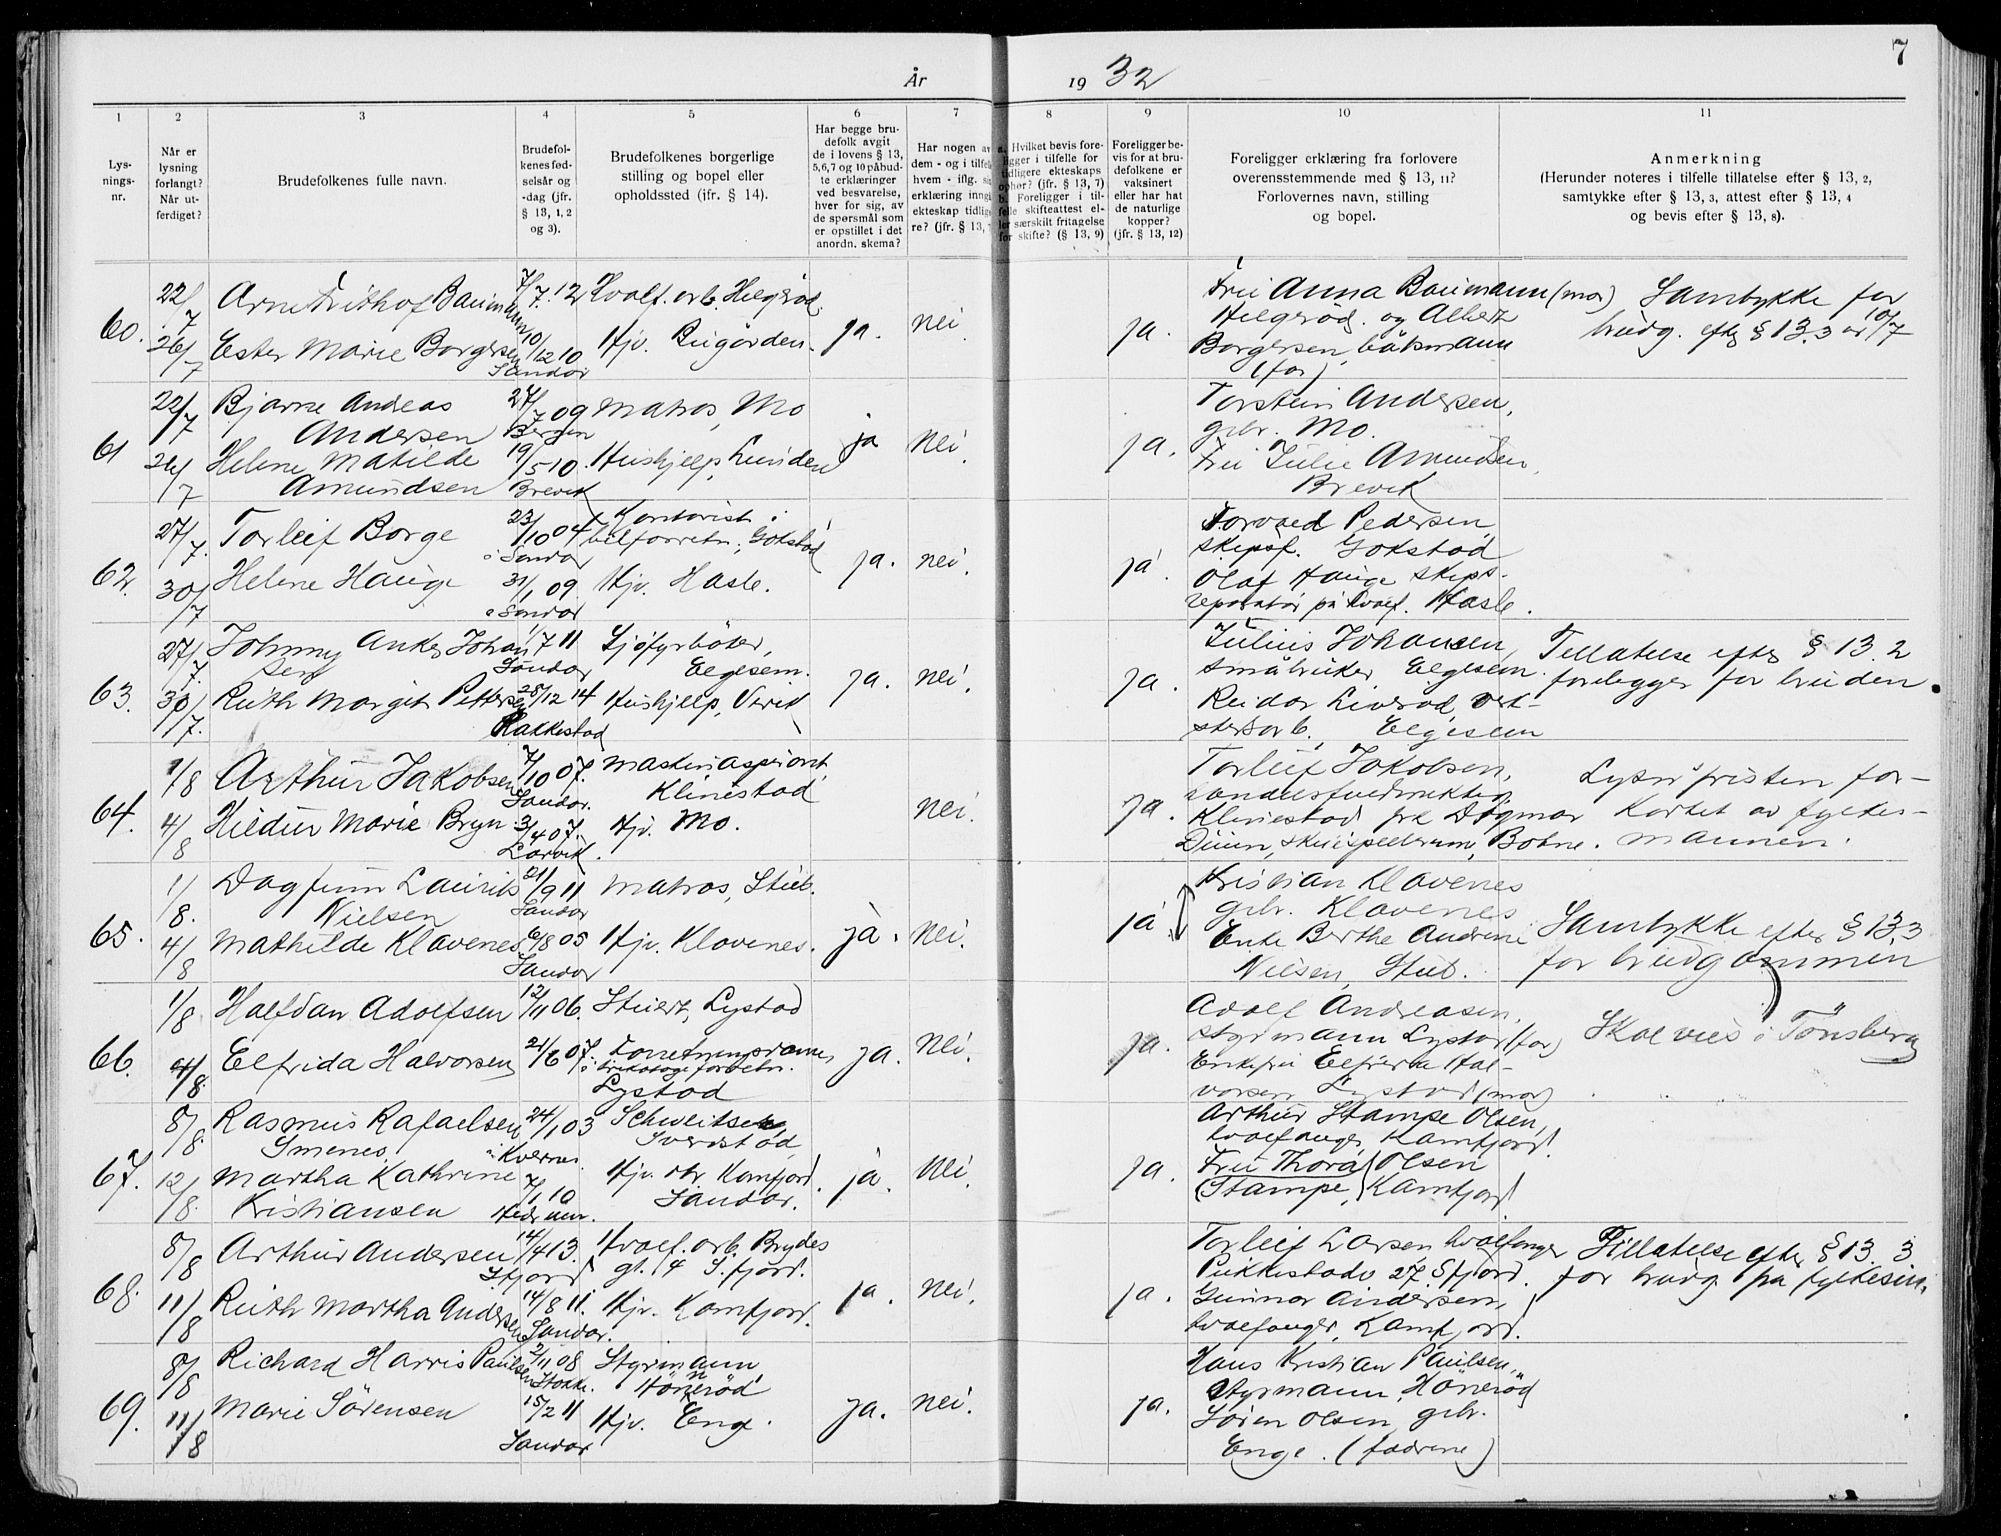 7
År 1932
1 2 3 4 5 6 7 8 9 10 11
Lys-
nings-
nr.
Når er
lysning
forlangt?
Når ut-
ferdiget?
Brudefolkenes fulle navn.
Brudefol-
kenes fød-
selsår og
-dag (jfr.
§ 13, 1, 2
og 3).
Brudefolkenes borgerlige
stilling og bopel eller
opholdssted (jfr. § 14).
Har begge bru-
defolk avgit
de i lovens § 13,
5,6,7 og 10 påbud-
te erklæringer
ved besvarelse,
hver for sig, av
de spørsmål som
er opstillet i det
anordn. skema?
Har nogen av
dem - og i tilfelle
hvem - iflg.
erklæring inngå
ekteskap tidlige-
re? (jfr. § 13,
a. Hvilket bevis fore-
ligger i tilfelle for
tidligere ekteskaps
ophør? (jfr. § 13, 7)
b. Foreligger i til-
felle skifteattest el-
ler særskilt fritagelse
for skifte? (§ 13, 9)
Foreligger be-
vis for at bru-
defolkene er
vaksinert
eller har hat
de naturlige
kopper?
(jfr. § 13, 12)
Foreligger erklæring fra forlovere
overensstemmende med § 13, 11?
Forlovernes navn, stilling
og bopel.
Anmerkning
(Herunder noteres i tilfelle tillatelse efter § 13, 2,
samtykke efter § 13, 3, attest efter § 13, 4
og bevis efter § 13, 8).
60. 22/7 Arne Frithof Baumann 7/7.12 Hvalf. arb. Helgerød.
26/7 Ester Marie Borgersen 10/12 10 Sandar Hjv. Rugården. ja. nei.
ja. Fru Anna Baumann (mor)
Helgerød. og Albert
Borgersen, båtsmann
(far)
Samtykke for
brudg. efter § 13.3 av 10/7
61 22/7 Bjarne Andreas
Andersen 27/7 09 Bergen Matros, Mo
26/7 Helene Matilde
Amundsen 19/5 10. Brevik Hushjelp, Lunden ja nei.
ja. Torstein Andersen,
gbr. Mo.
Fru Julie Amundsen,
Brevik
62. 27/7. Torleif Borge 23/10 04 i Sandar Kontorist i
bilforretn., Gokstad
30/7 Helene Hauge 31/1 09. i Sandar Hjv. Hasle. ja. nei.
ja. Torvald Pedersen
skipsf. Gokstad
Olaf Hauge skips-
reparatør på hvalf. Hasle.
63. 27/7. Johnny Anker Johan
sen 1/7 11 Sandar Sjøfyrbøter,
Elgesem.
30/7. Ruth Margit Pettersen 25/12 14 Rakkestad Hushjelp, Virik ja. nei.
ja. Julius Johansen,
småbruker Elgesem.
Reidar Liverød, verk-
stedarb. Elgesem
Tillatelse efter § 13.2
foreligger for bruden.
64. 1/8 Arthur Jakobsen 7/10 07. Sandar. Maskinaspirant,
Klinestad
4/8 Hildur Marie Bryn. 3/4 07. Larvik. Hjv. Mo. nei.
ja. Torleif Jakobsen,
Klinestad frk Dagmar
Botne.
Lysn.sfristen for-
kortet av fylkes-
mannen.
65. 1/8. Dagfinn Laurits
Nielsen 21/9 11 Sandar Matros, Stub.
4/8 Mathilde Klavenes 6/8 05 Sandar Hjv. Klavenes. ja. nei.
ja Kristian Klavenes
gbr. Klavenes
Enke Berthe Andrine
Nielsen, Stub.
Samtykke efter § 13.3
for brudgommen
66. 1/8 Halfdan Adolfsen 12/11 06. Stuert, Lystad
4/8. Elfrida Halvorsen 21/6 07. Forretningsdame
i trikotageforretn.
Lystad ja. nei.
ja. Adolf Andreasen,
styrmann Lystad (far)
Enkefru Elfrida Hal-
vorsen Lystad (mor)
Skal vies i Tønsberg
67. 8/8. Rasmus Rafaelsen
Smenes. 24/1 03 i Kvernes. Schweitser,
12/8. Martha Kathrine
Kristiansen 7/1 10 Hedrum. Hjv. Kamfjord.
Sandar. ja. nei.
ja. Arthur Stampe Olsen,
hvalfanger, Kamfjord.
Fru Thora Olsen
(Stampe,) Kamfjord
68. 8/8 Arthur Andersen 14/4 13. S.fjord Hvalf. arb. Brydes
gt. 4 S.fjord.
11/8 Ruth Martha Andersen 14/8 11. Sandar. Hjv. Kamfjord. ja. nei.
ja. Torleif Larsen hvalfanger
Pukkestadv 27. Sfjord.
Gunnar Andersen,
hvalfanger, Kamfjord.
Tillatelse efter § 13.3
for brudg. på fylkesm.
69. 8/8 Richard Harris Paulsen 2/11 08 Stokke. Styrmann,
Hønerød
11/8 Marie Sørensen 15/2 11 Sandar Hjv. Enge. ja. nei.
ja. Hans Kristian Paulsen,
Styrmann, Hønerød
Søren Olsen, gbr.
Enge. (fædrene)